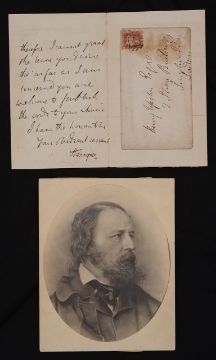 therefore I cannot grant
the leave you desire
tho' as far as I am
concerned you are
welcome to publish
the words to your music
I have the honour to be
Your obedient servant
ATennyson
Henry
London